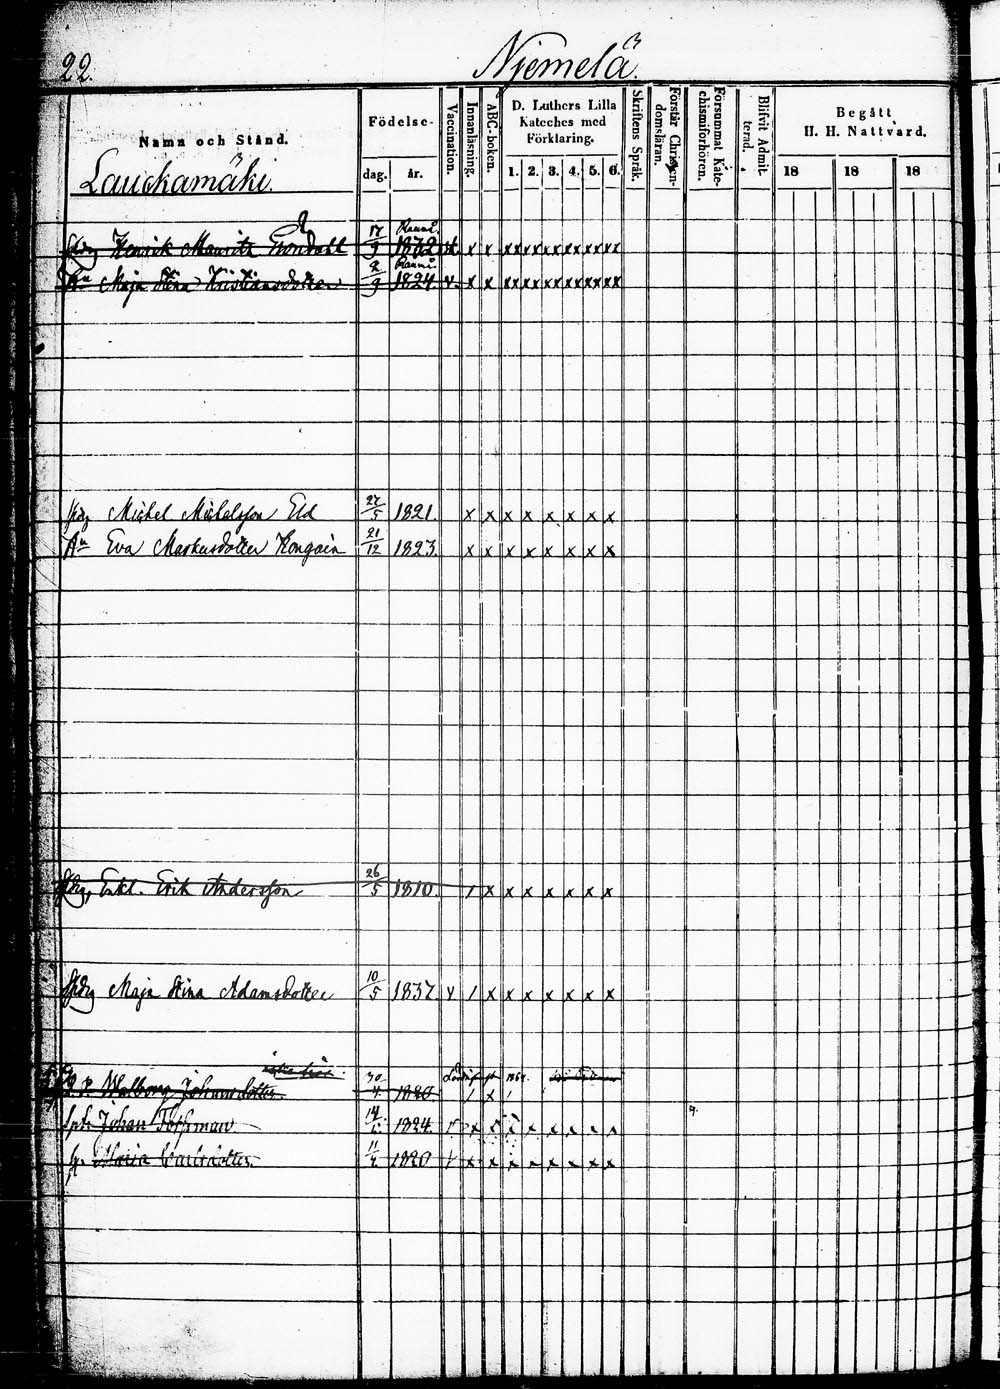 22.
Njemelä.
Nama och Stånd.
Födelse-
dag. år.
Vaccination.
Innanläsning.
ABC-boken.
D. Luthers Lilla
Kateches med
Förklaring.
1. 2. 3. 4. 5. 6.
Skriftens Språk.
Förstår Christen-
domsläran.
Försummat Kate-
chismiförhören.
Blifvit Admit-
terad.
Begått
H. H. Nattvard.
18 18 18
Lauckamäki.
17/9 1822 x x xx xx xx xx xx xx
Henrik Maurits
Hu Maja Stina Kristiansdotter 2/9 1824 v. x x xx xx xx xx xx xx
Michel Michelsson Eld 27/5 1821. x x x x x x x x
Hu Eva Markusdotter Kongain 21/12 1823. x x x x x x x x
Enkl. Erik Andersson 26/5 1810. / x x x x x x x
Maja Stina Adamsdotter 10/5 1837 v / x x x x x x x
Walborg Johansdotter 30/4 1820. / x /
Johan 14 1824. v x x
Maria Carlsdotter 11 1820 v x x